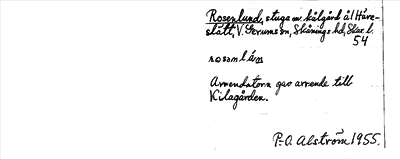 Rosenlund, stuga en kålgård å Håre-
slätt, V. Gerums sn, Skånings hd, Skar. l.
54
rosənlún
Arrendatorn gav arrende till
Kilagården.
P.-O. Alström 1955.